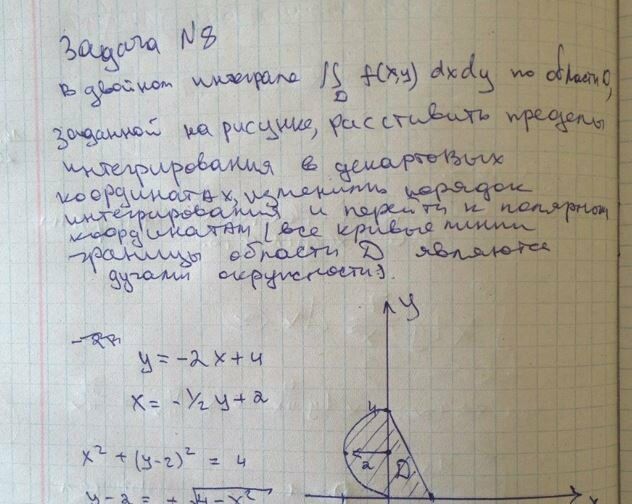 Задача N8
в двойном интеграле ∫∫ f(x,y) dxdy по области D,
D
заданной на рисунке, расставить пределы
интегрирования в декартовых
координатах, изменить порядок
интегрирования и перейти к полярным
координатам (все кривые линии
границы области D являются
дугами окружности).
y = -2x+4
x = -1/2 y+2
x² + (y-2)² = 4
y-2 = ± √4-x²
y
4
2
D
x